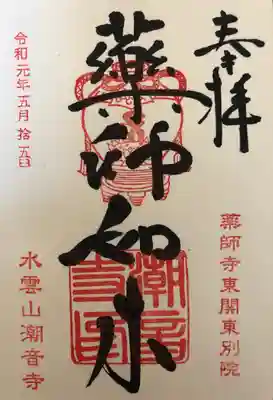 奉拝
薬師寺東関東別院
藥師如来
水雲山潮音寺
令和元年五月拾五日